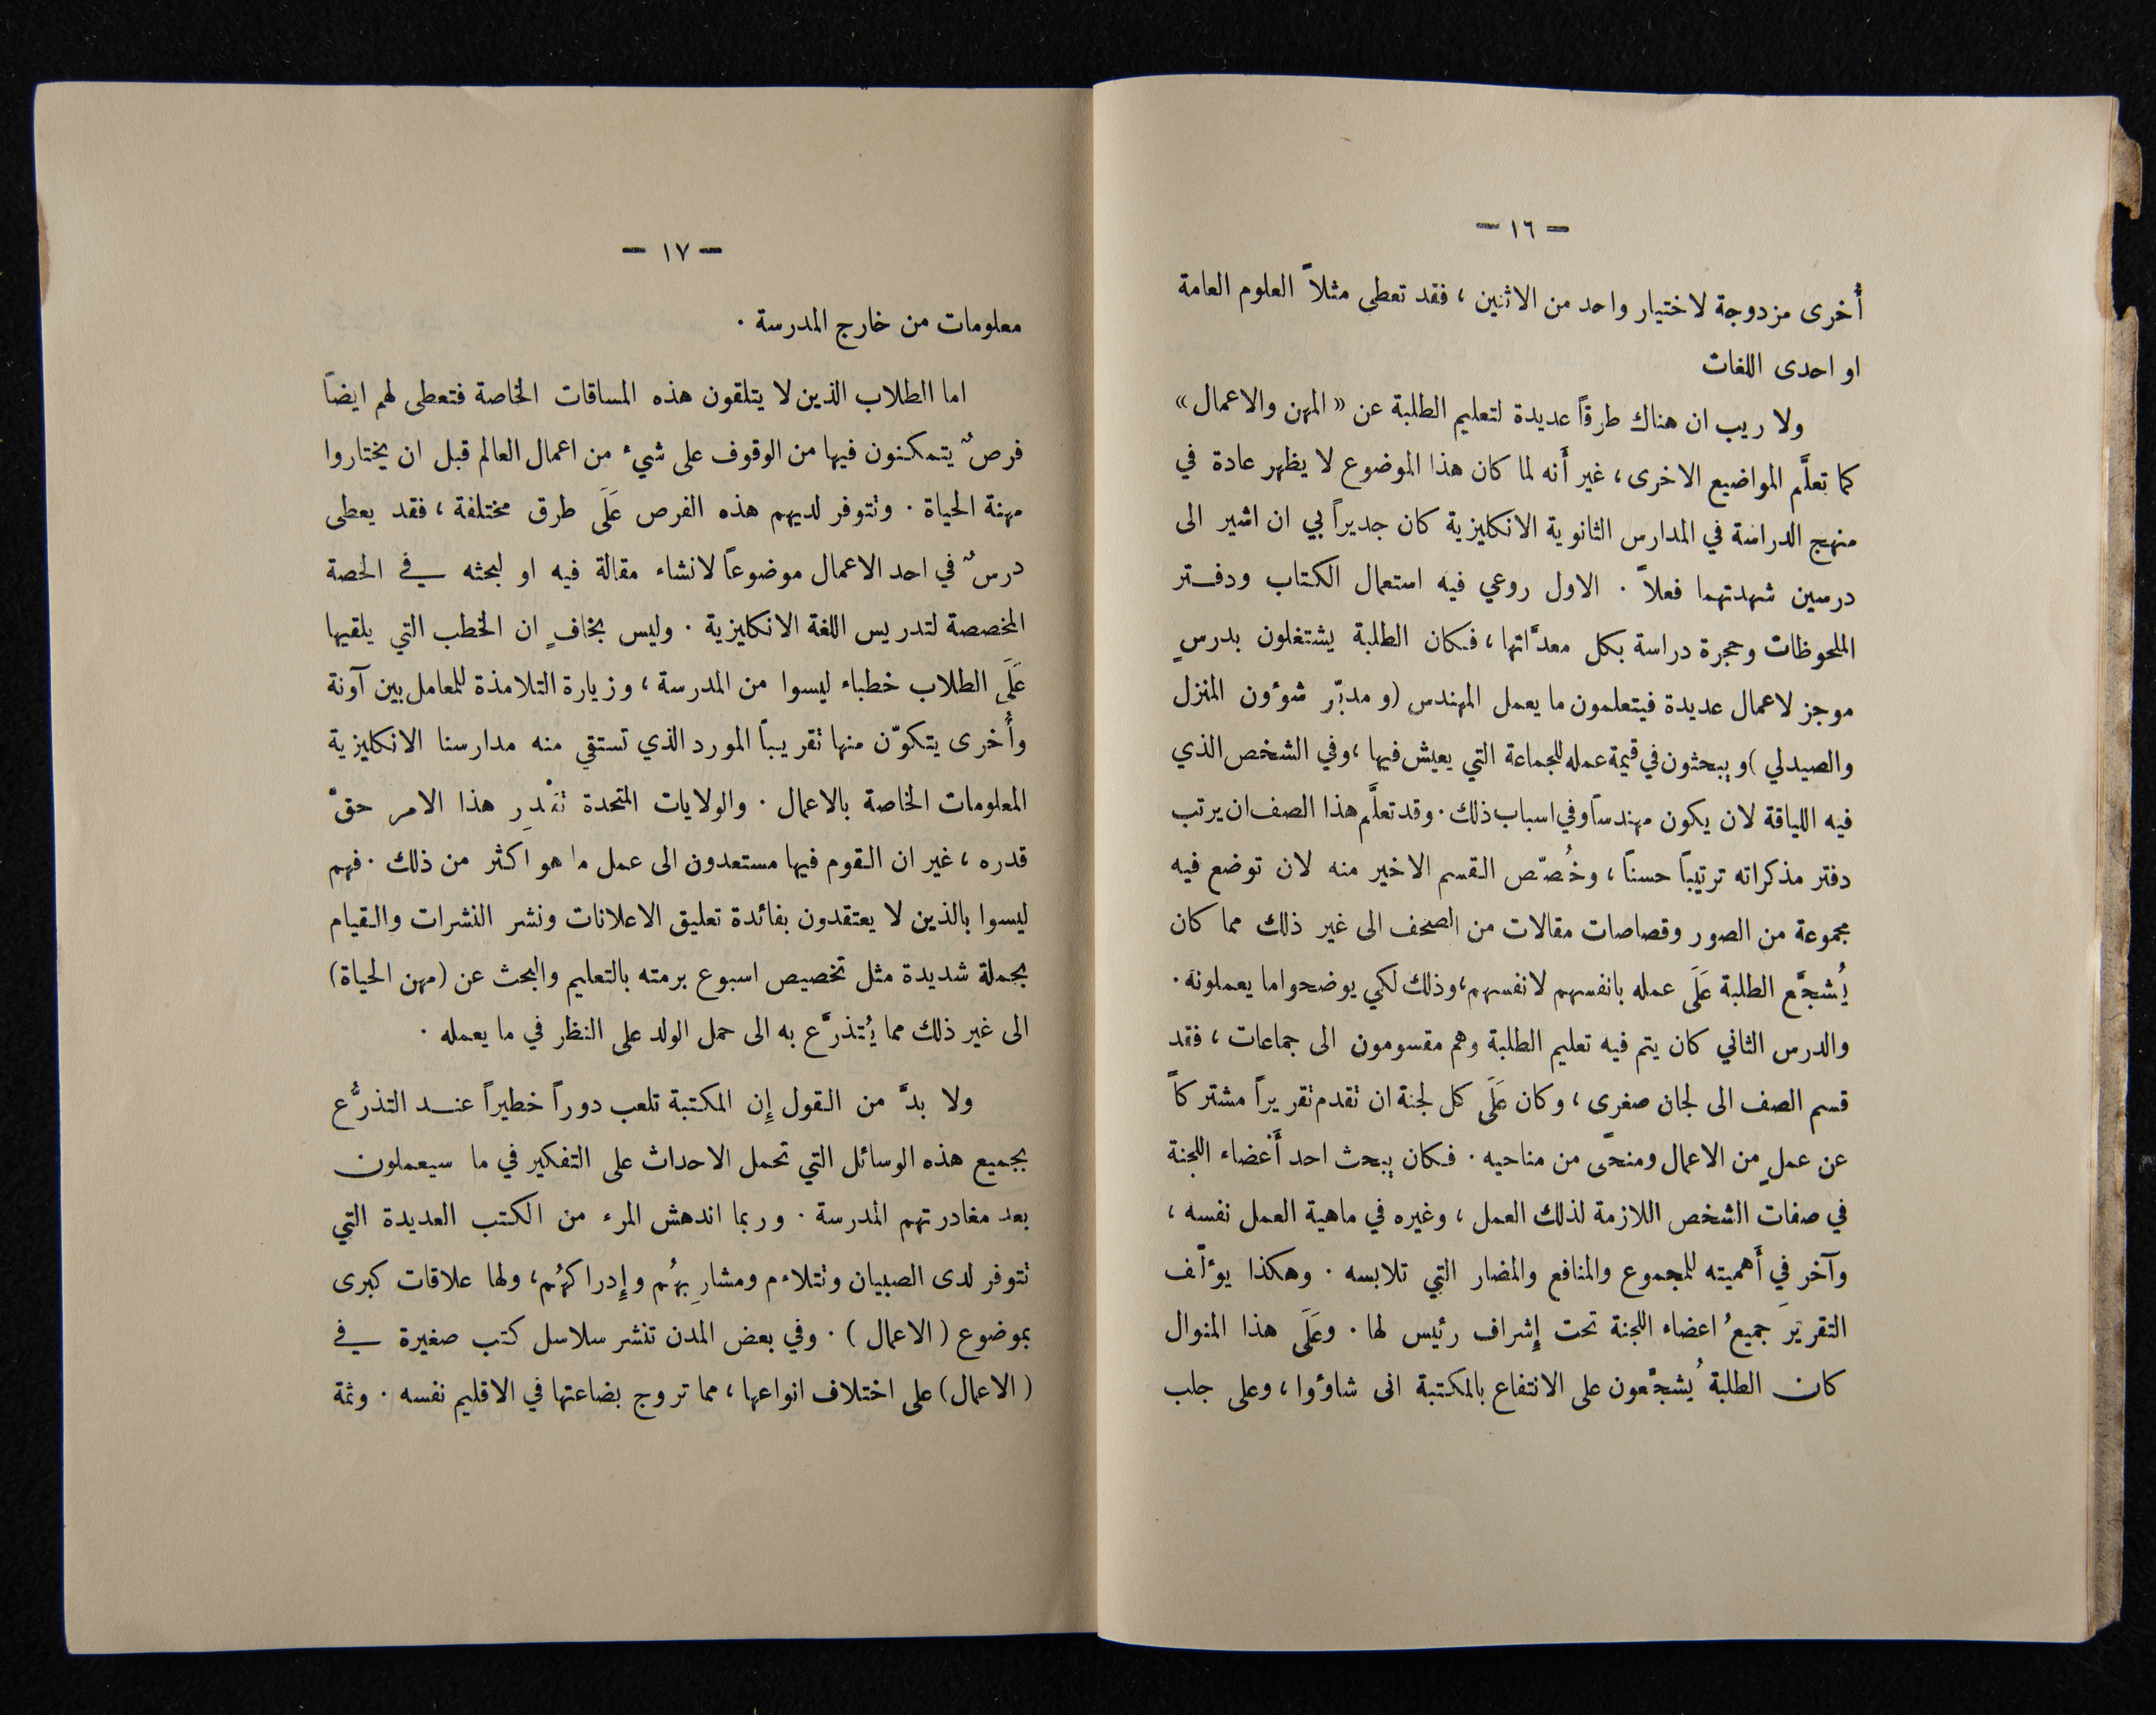 — ١٦ —
أُخرى مزدوجة لاختيار واحد من الاثنين ، فقد تعطى مثلاً العلوم العامة
او احدى اللغات
ولا ريب ان هناك طرقاً عديدة لتعليم الطلبة عن « المهن والاعمال »
كما تعلَّم المواضيع الاخرى ، غير أَنه لما كان هذا الموضوع لا يظهر عادة في
منهج الدراسة في المدارس الثانوية الانكليزية كان جديراً بي ان اشير الى
درسين شهدتهما فعلاً . الاول روعي فيه استعمال الكتاب ودفتر
الملحوظات وحجرة دراسة بكل معدَّاتها ، فكان الطلبة يشتغلون بدرسٍ
موجز لاعمال عديدة فيتعلمون ما يعمل المهندس (و مدبّر شوءُون المنزل
والصيدلي ) ويبحثون في قيمة عمله للجماعة التي يعيش فيها ، وفي الشخص الذي
فيه اللياقة لان يكون مهندساً وفي اسباب ذلك . وقد تعلَّم هذا الصف ان يرتب
دفتر مذكراته ترتيباً حسناً ، وخُصّص القسم الاخير منه لان توضع فيه
مجموعة من الصور وقصاصات مقالات من الصحف الى غير ذلك مما كان
يُشجَّع الطلبة عَلَى عمله بانفسهم لانفسهم ، وذلك لكي يوضحوا ما يعملونه .
والدرس الثاني كان يتم فيه تعليم الطلبة وهم مقسومون الى جماعات ، فقد
قسم الصف الى لجان صغرى ، وكان عَلَى كل لجنة ان تقدم تقريراً مشتركاً
عن عملٍ من الاعمال ومنحًى من مناحيه . فكان يبحث احد أَعضاء اللجنة
في صفات الشخص اللازمة لذلك العمل ، وغيره في ماهية العمل نفسه ،
وآخر في أَهميته للمجموع والمنافع والمضار التي تلابسه . وهكذا يوءَلّف
التقريرَ جميعُ اعضاء اللجنة تحت إِشراف رئيس لها . وعَلَى هذا المنوال
كان الطلبة يُشجَّعون على الانتفاع بالمكتبة انى شاوءُوا ، وعلى جلب
— ١٧ —
معلومات من خارج المدرسة .
اما االطلاب الذين لا يتلقون هذه المساقات الخاصة فتعطى لهم ايضاً
فرصٌ يتمكنون فيها من الوقوف على شيء من اعمال العالم قبل ان يختاروا
مهنة الحياة . وتتوفر لديهم هذه الفرص عَلَى طرق مختلفة ، فقد يعطى
درسٌ في احد الاعمال موضوعاً لانشاء مقالة فيه او لبحثه في الحصة
المخصصة لتدريس اللغة الانكليزية . وليس بخافٍ ان الخطب التي يلقيها
عَلَى الطلاب خطباء ليسوا من المدرسة ، وزيارة التلامذة للمعامل بين آونة
وأُخرى يتكوّن منها تقريباً المورد الذي تستقي منه مدارسنا الانكليزية
المعلومات الخاصة بالاعمال . والولايات المتحدة تقْدِر هذا الامر حقّ
قدره ، غير ان القوم فيها مستعدون الى عمل ما هو اكثر من ذلك . فهم
ليسوا بالذين لا يعتقدون بفائدة تعليق الاعلانات ونشر النشرات والقيام
بحملة شديدة مثل تخصيص اسبوع برمته بالتعليم والبحث عن (مهن الحياة)
الى غير ذلك مما يُتذرَّع به الى حمل الولد على النظر في ما يعمله .
ولا بدَّ من القول إِن المكتبة تلعب دوراً خطيراً عند التذرُّع
بجميع هذه الوسائل التي تحمل الاحداث على التفكير في ما سيعملون
بعد مغادرتهم المدرسة . وربما اندهش المرء من الكتب العديدة التي
تتوفر لدى الصبيان وتتلاءم ومشاربهُم وإِدراكهُم ، ولها علاقات كبرى
بموضوع ( الاعمال ) . وفي بعض المدن تنشر سلاسل كتب صغيرة في
( الاعمال) على اختلاف انواعها ، مما تروج بضاعتها في الاقليم نفسه . وثمة